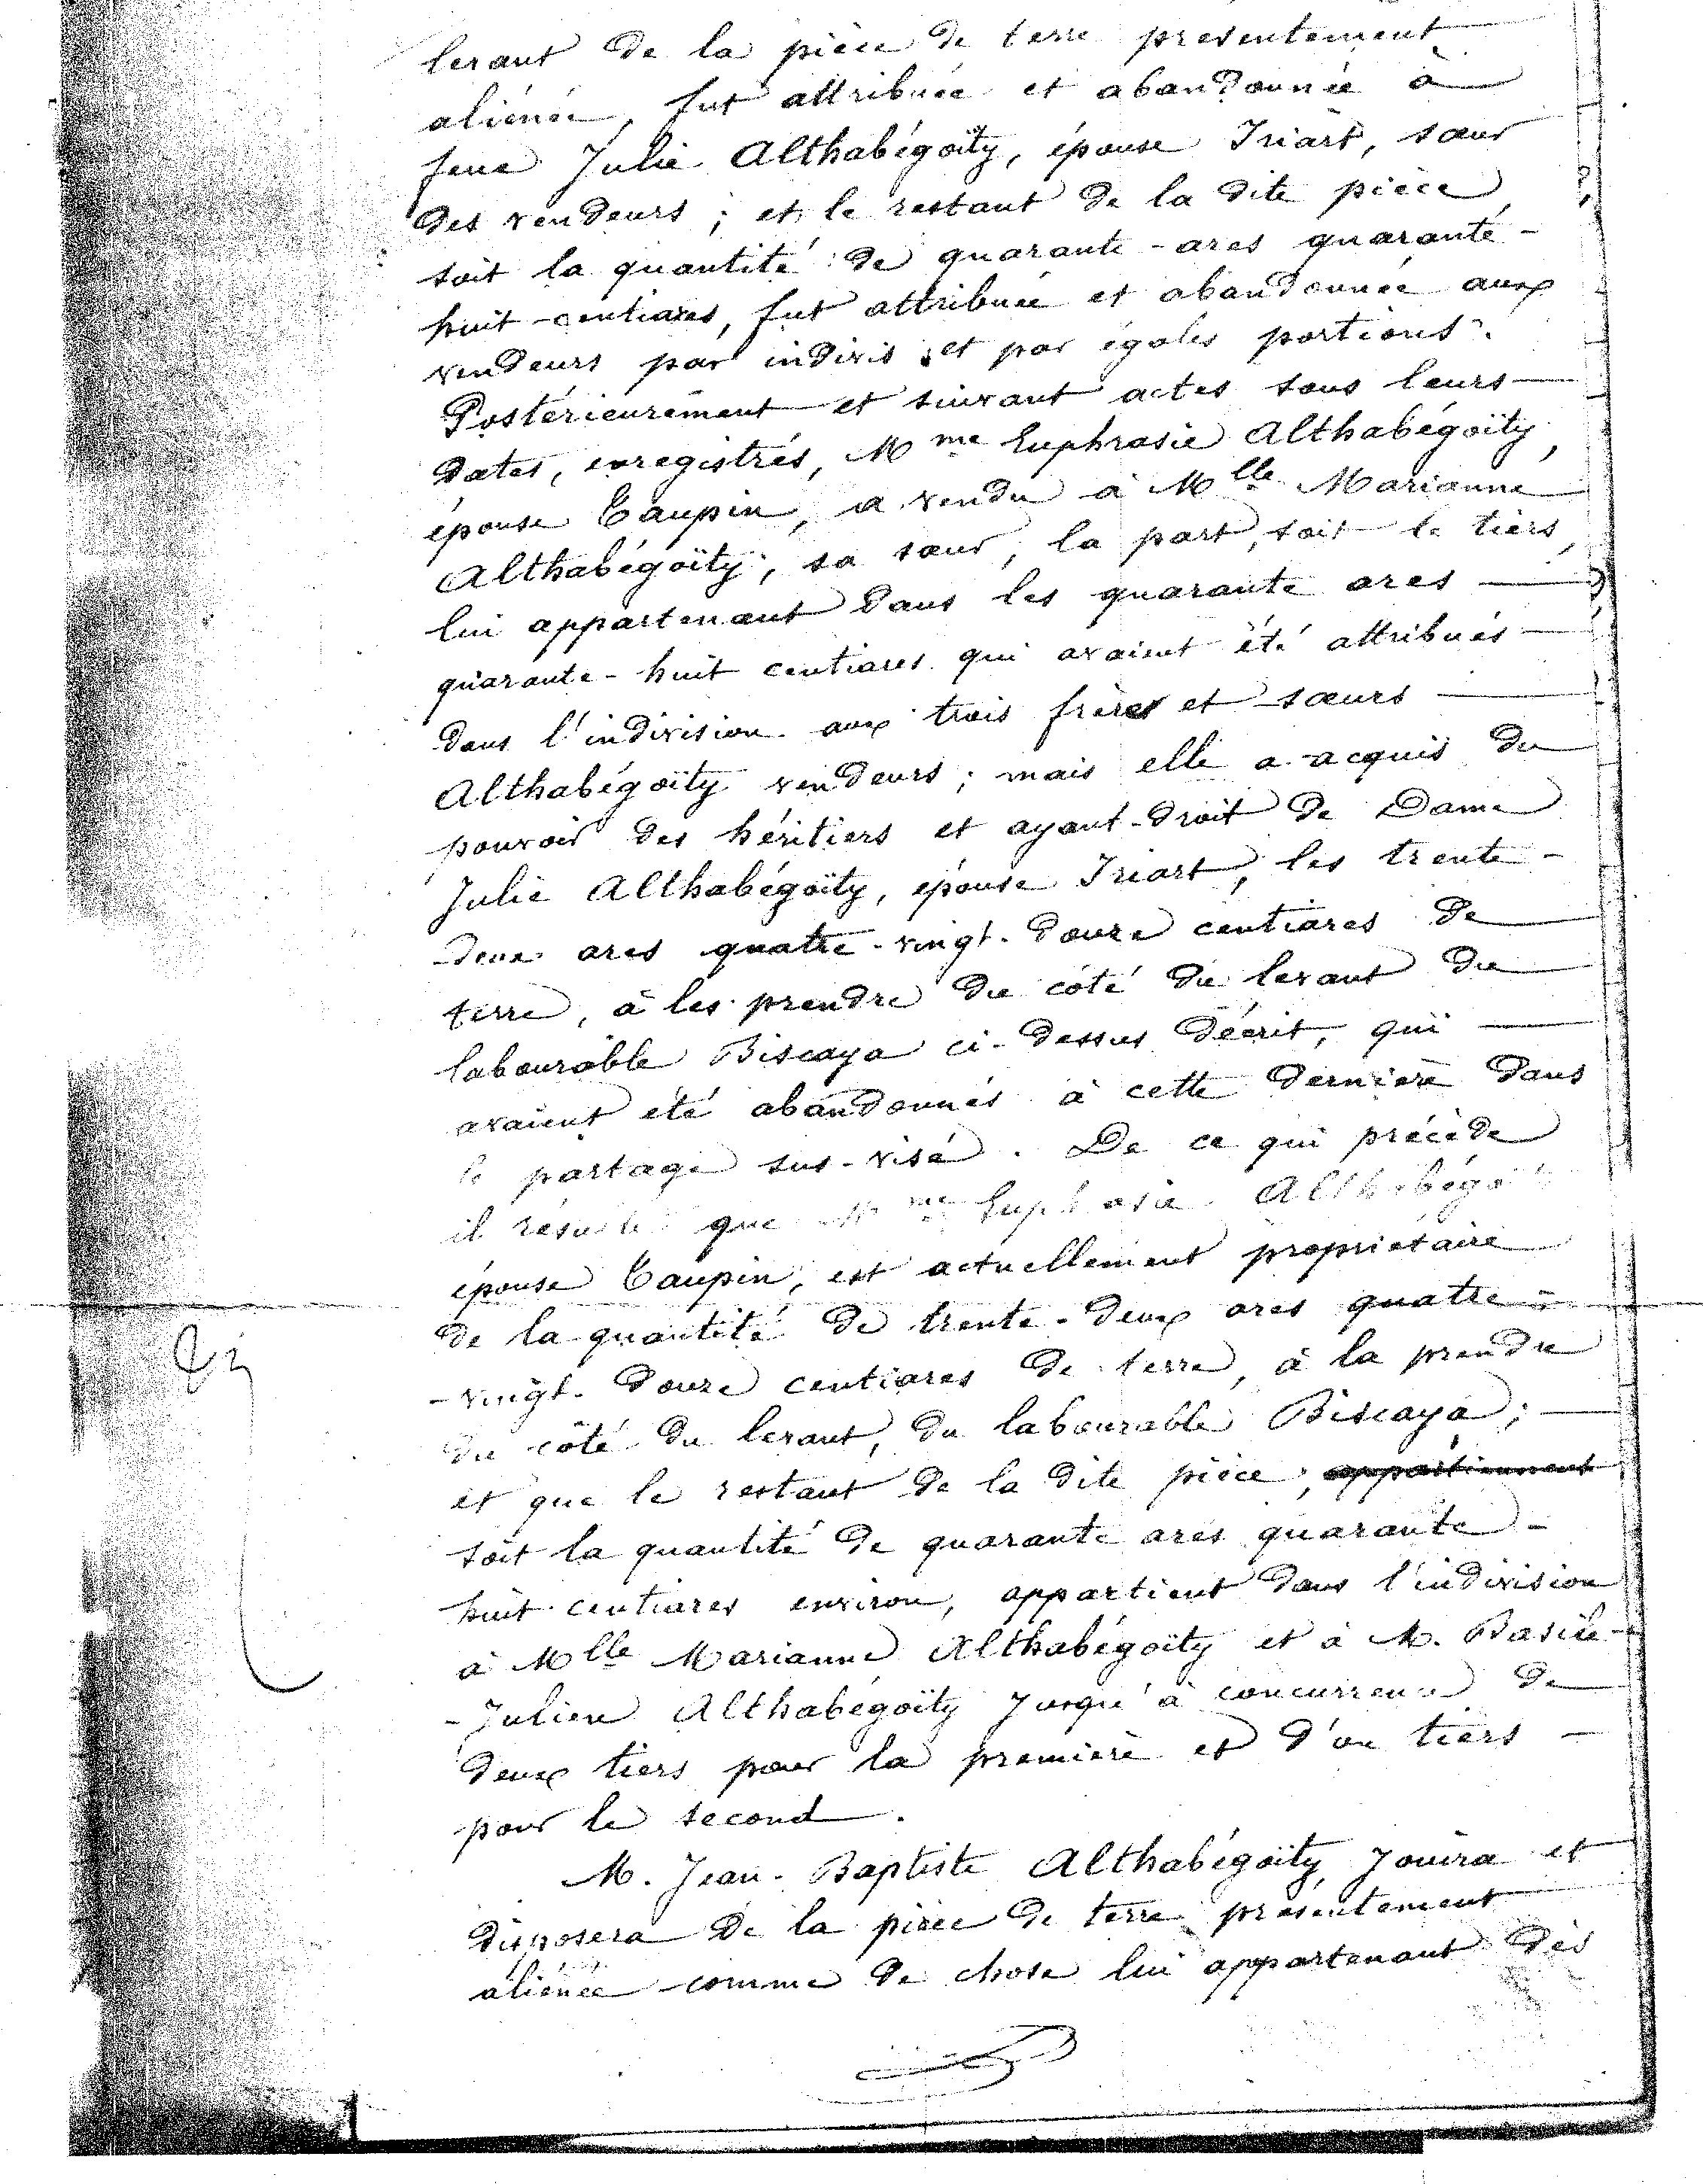 levant de la pièce de terre présentement
aliénée, fut attribuée et abandonnée à
feue Julie Althabégoïty, épouse Iriart, sœur
des vendeurs ; et le restant de la dite pièce,
soit la quantité de quarante-ares quarante-
huit-centiares, fut attribuée et abandonnée aux
vendeurs par indivis et par égales portions.
Postérieurement et suivant actes sous leurs
dates, enregistrés, Mme Euphrasie Althabégoïty,
épouse Taupin, a vendu à Mlle Marianne
Althabégoïty, sa sœur, la part, soit le tiers,
lui appartenant dans les quarante ares
quarante-huit centiares qui avaient été attribués
dans l'indivision aux trois frères et sœurs
Althabégoïty vendeurs ; mais elle a acquis du
pouvoir des héritiers et ayant-droit de Dame
Julie Althabégoïty, épouse Iriart, les trente-
-deux ares quatre-vingt-douze centiares de
terre, à les prendre du côté du levant du
labourable Biscaya ci-dessus décrit, qui
avaient été abandonnés à cette dernière dans
le partage sus-visé. De ce qui précède
il résulte que Mme Euphrasie Althabégoïty
épouse Taupin, est actuellement propriétaire
de la quantité de trente-deux ares quatre-
-vingt-douze centiares de terre, à la prendre
du côté du levant, du labourable Biscaya ;
et que le restant de la dite pièce, appartiennent
soit la quantité de quarante ares quarante-
huit centiares environ, appartient dans l'indivision
à Mlle Marianne Althabégoïty et à M. Basile-
-Julien Althabégoïty jusqu'à concurrence de
deux tiers pour la première et d'un tiers
pour le second.
M. Jean-Baptiste Althabégoïty, jouira et
disposera de la pièce de terre présentement
aliénée comme de chose lui appartenant dès